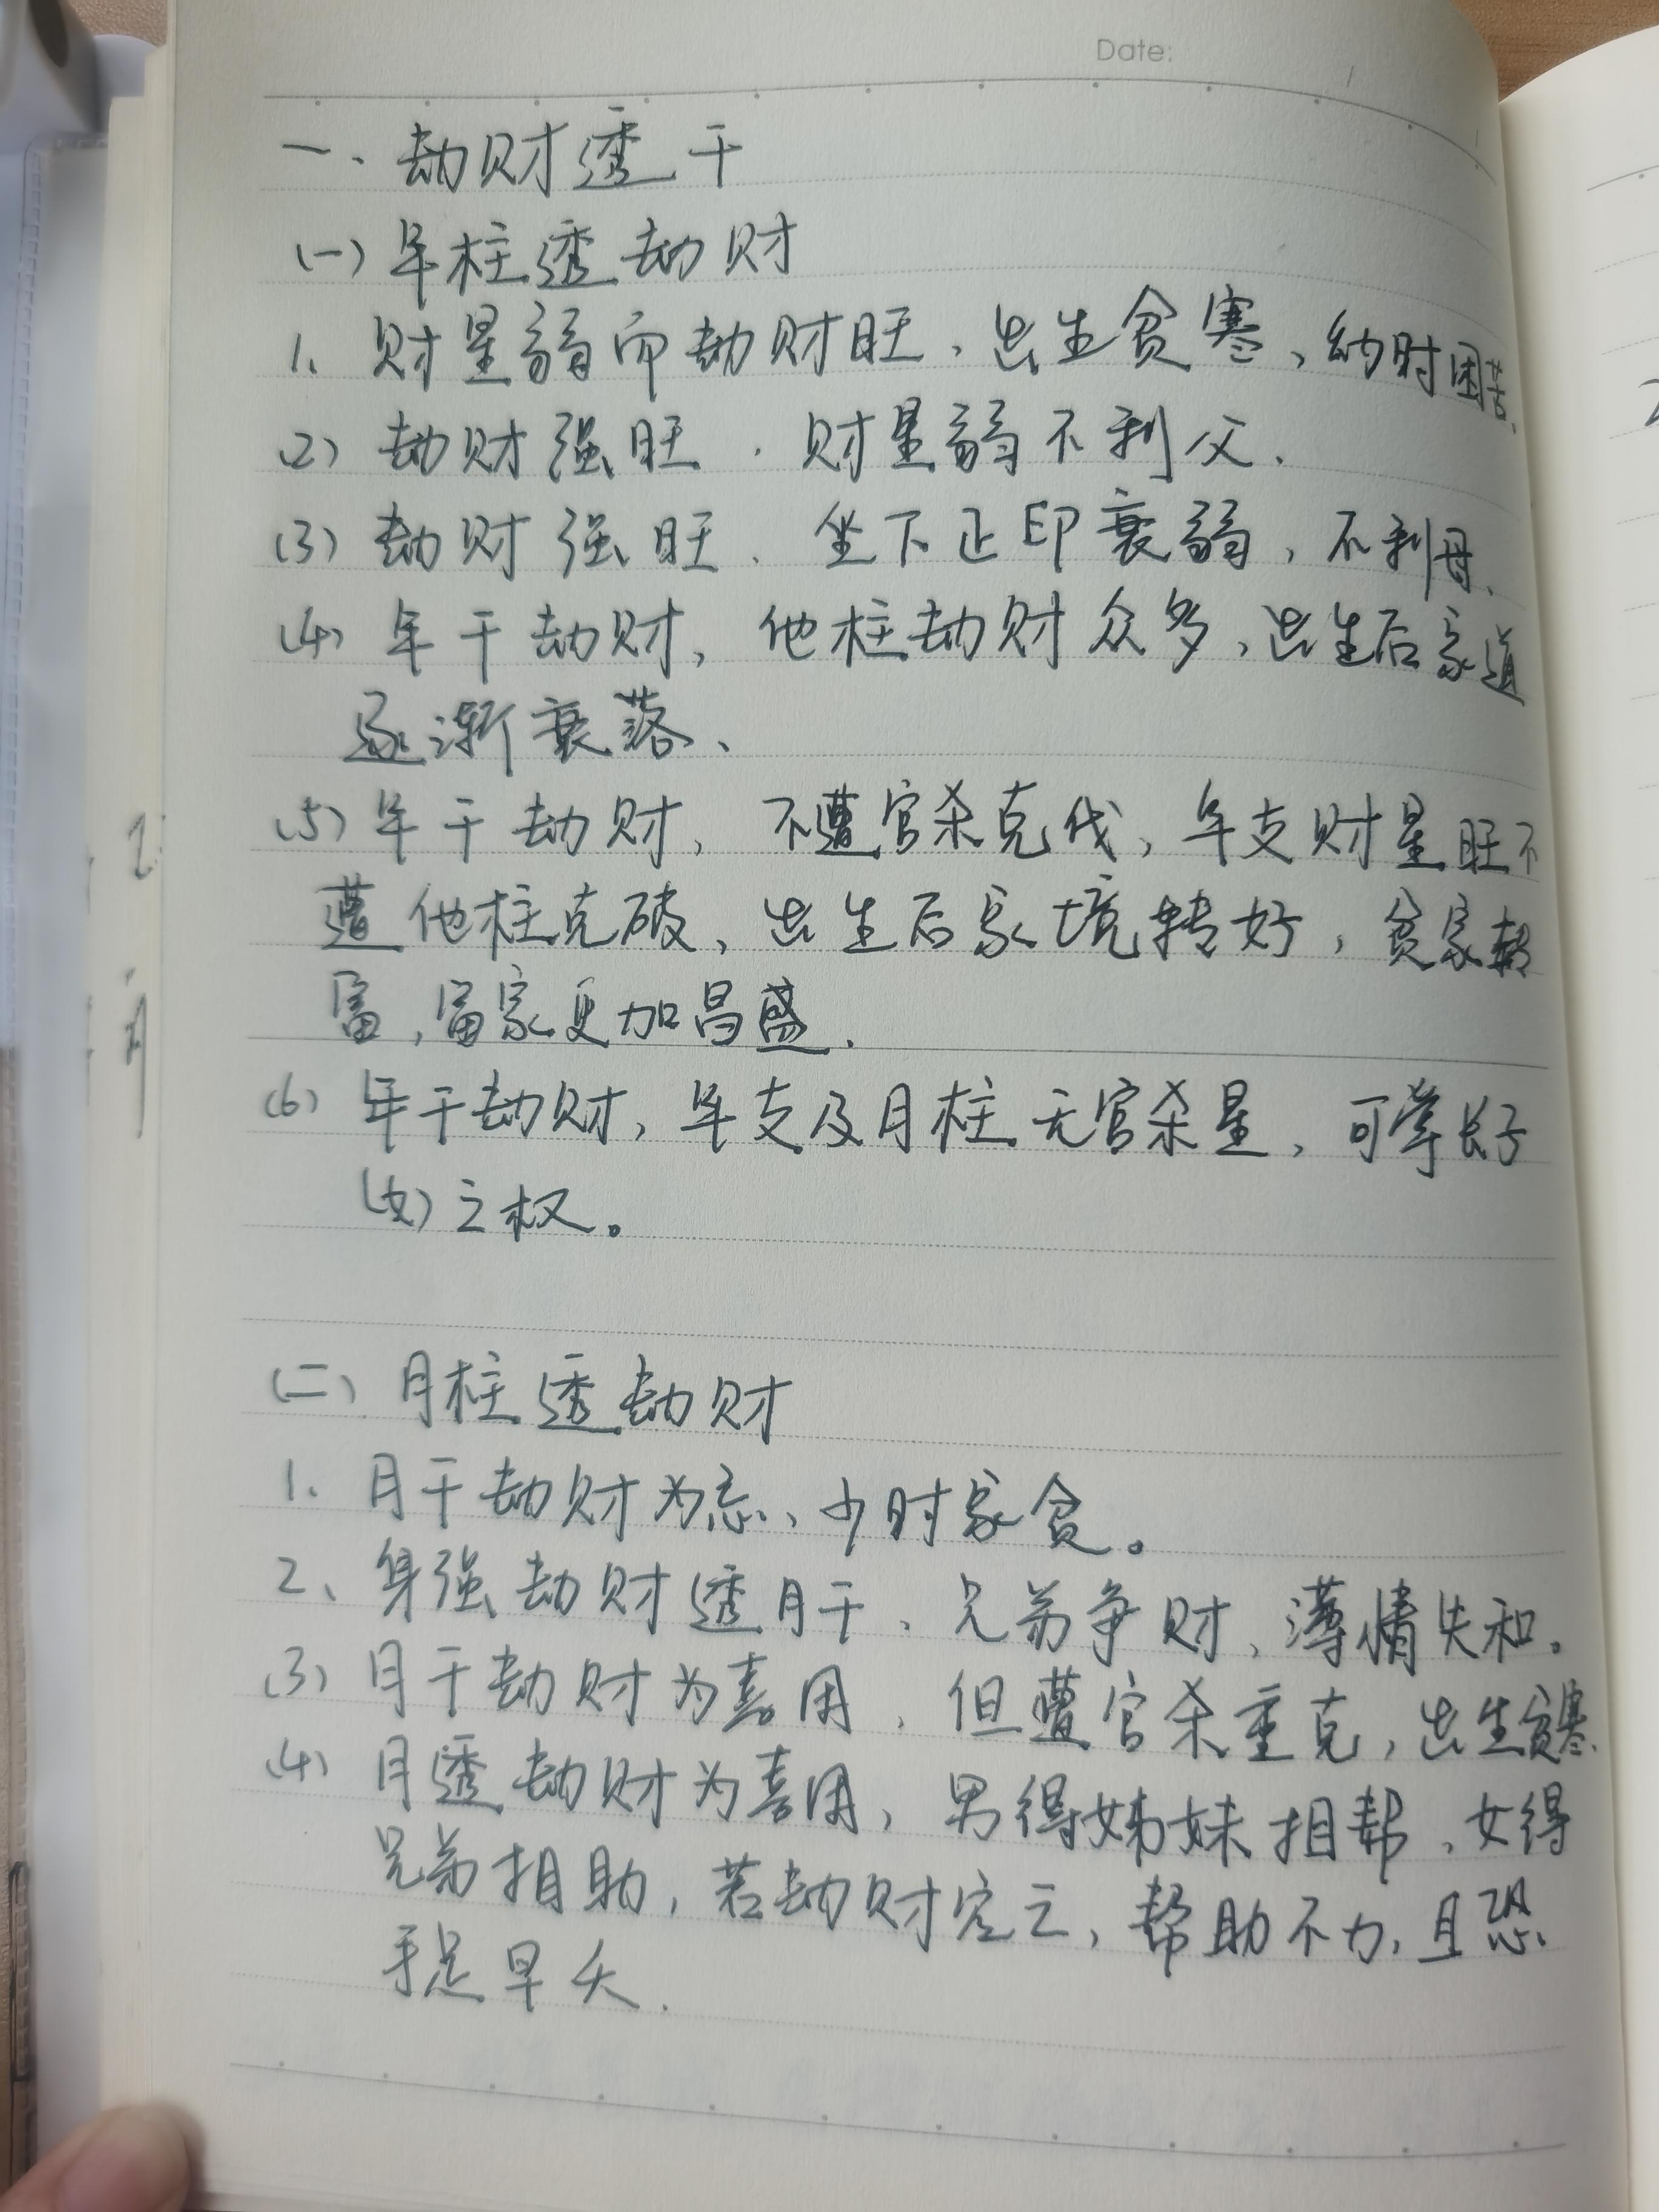 Date:
一、劫财透干
(一)年柱透劫财
1、财星弱而劫财旺、出生贫寒、幼时困苦、
(2) 劫财强旺、财星弱不利父、
(3) 劫财强旺、坐下正印衰弱,不利母、
(4) 年干劫财,他柱劫财众多、出生后家道
逐渐衰落、
(5) 年干劫财,不遭官杀克伐,年支财星旺不
遭他柱克破、出生后家境转好,贫家转
富,富家更加昌盛.
(6) 年干劫财,年支及月柱无官杀星,可掌长子
(女)之权。
(二)月柱透劫财
1、月干劫财为忌、少时家贫。
2、身强劫财透月干、兄弟争财、薄情失和。
(3) 月干劫财为喜用,但遭官杀重克,出生贫寒、
(4) 月透劫财为喜用,男得姊妹相帮、女得
兄弟相助,若劫财空亡,帮助不力,且恐
手足早夭.